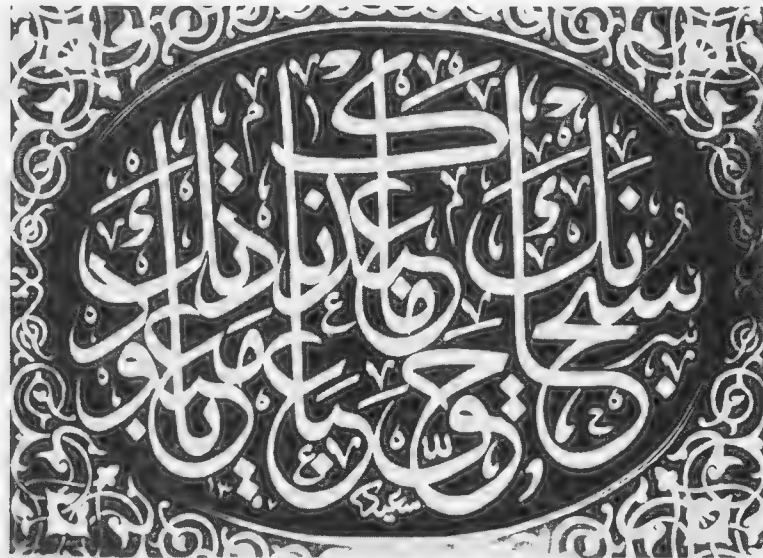 سبحانك ما عبدناك حق عبادتك يا معبود